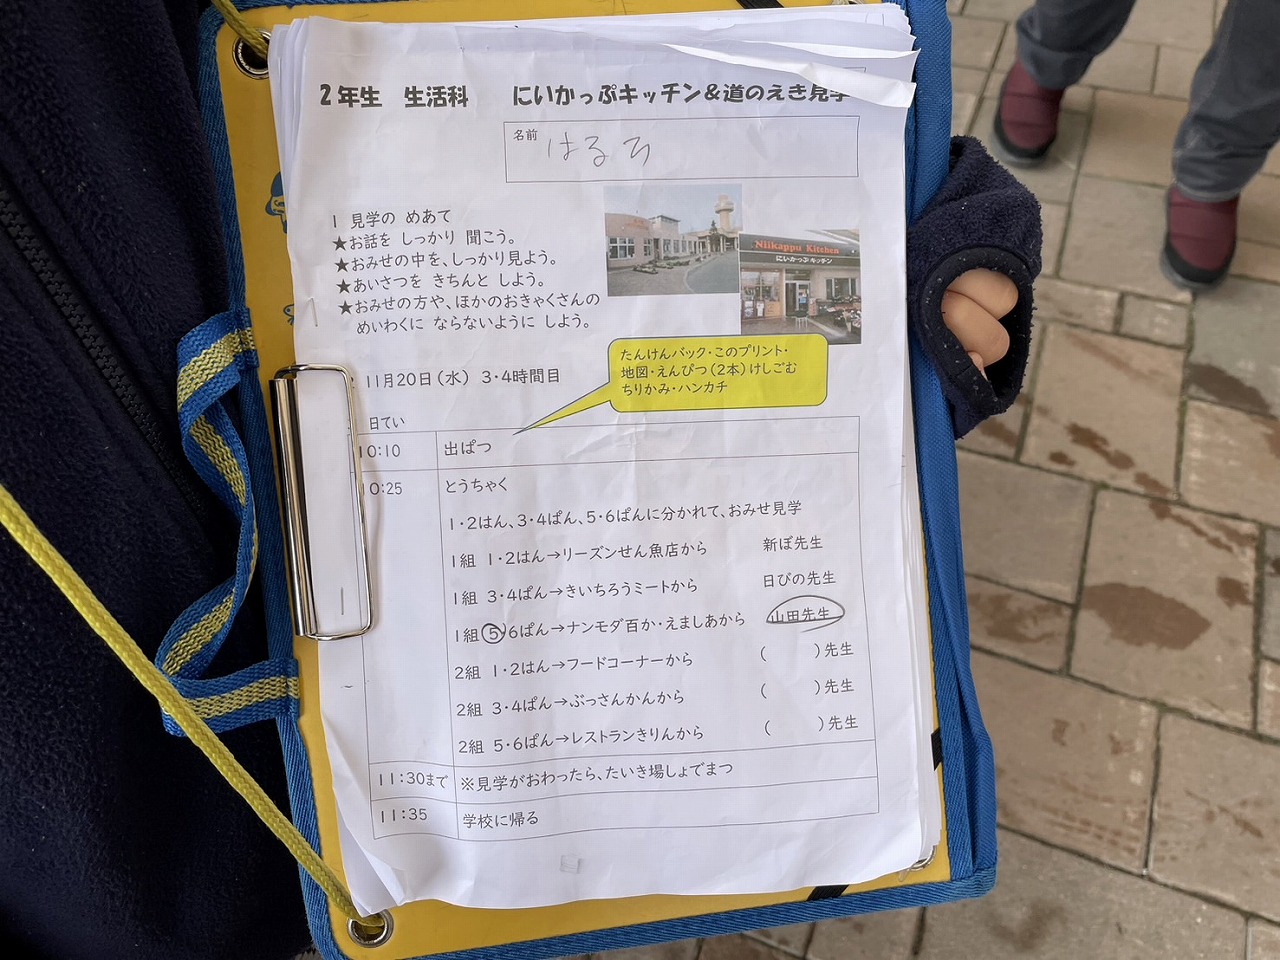 2年生　生活科　　にいかっぷキッチン＆道のえき見学
名前
はるち
1　見学の めあて
★お話を しっかり 聞こう。
★おみせの中を、しっかり見よう。
★あいさつを きちんと しよう。
★おみせの方や、ほかのおきゃくさんの
めいわくに ならないように しよう。
Niikappu Kitchen
にいかっぷキッチン
たんけんバック・このプリント・
地図・えんぴつ（2本）けしごむ
ちりかみ・ハンカチ
11月20日（水） 3・4時間目
日てい
10:10 出ぱつ
10:25 とうちゃく
1・2はん、3・4ぱん、5・6ぱんに分かれて、おみせ見学
1組 1・2はん→リーズンせん魚店から 新ぼ先生
1組 3・4ぱん→きいちろうミートから 日びの先生
1組 5・6ぱん→ナンモダ百か・えましあから 山田先生
2組 1・2はん→フードコーナーから （　　　）先生
2組 3・4ぱん→ぶっさんかんから （　　　）先生
2組 5・6ぱん→レストランきりんから （　　　）先生
11:30まで ※見学がおわったら、たいき場しょでまつ
11:35 学校に帰る